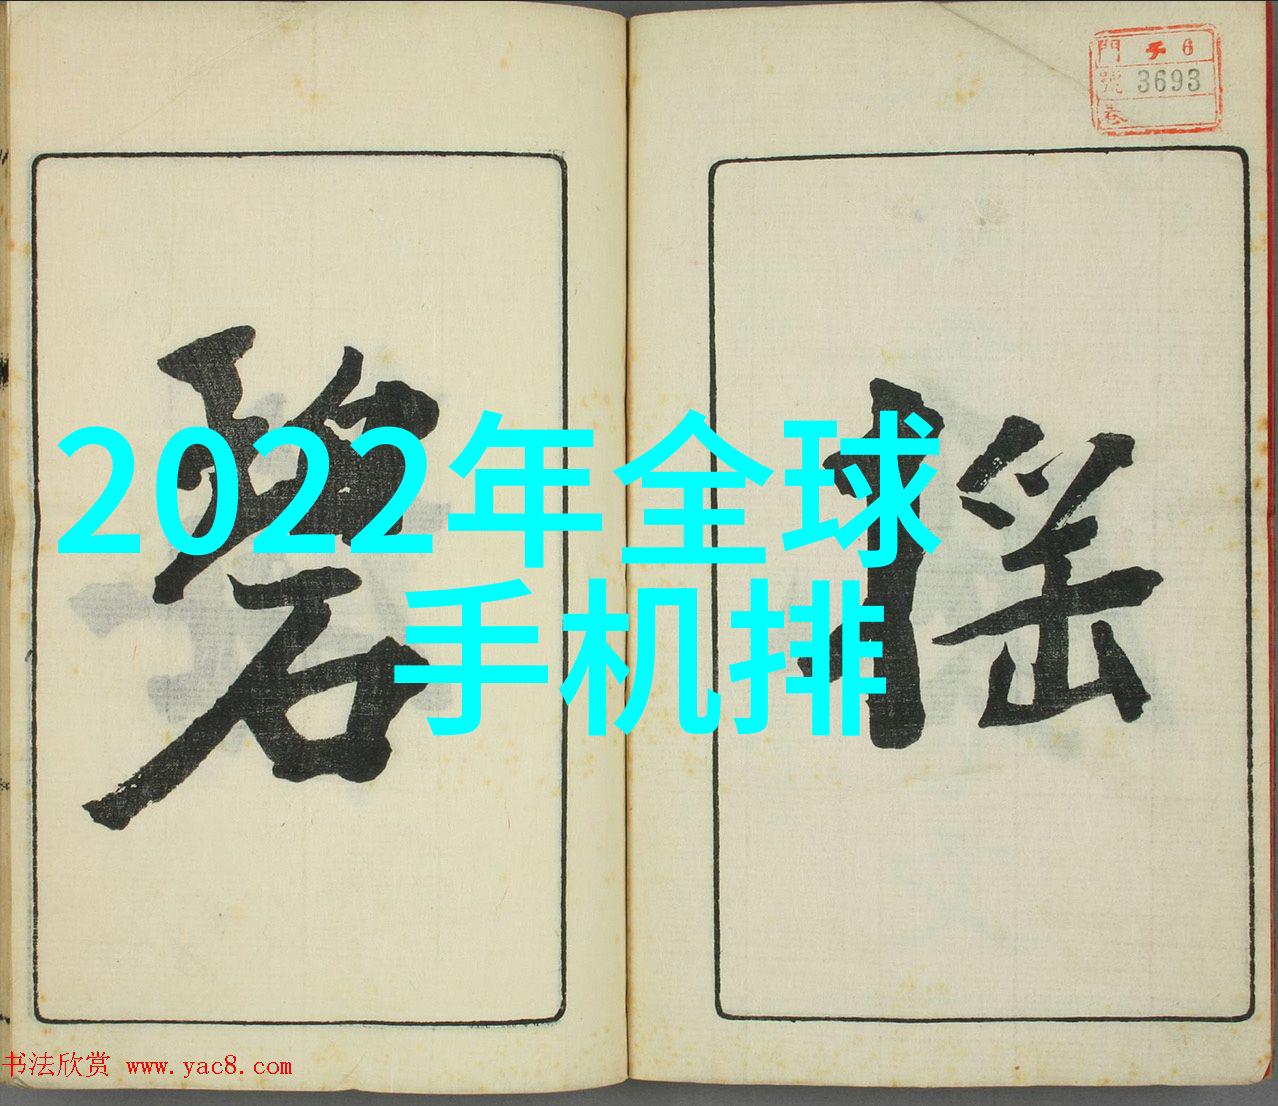 門 子 6
號 3693
卷
搖
碧
2022年全球
手机排
书法欣赏 www.yac8.com